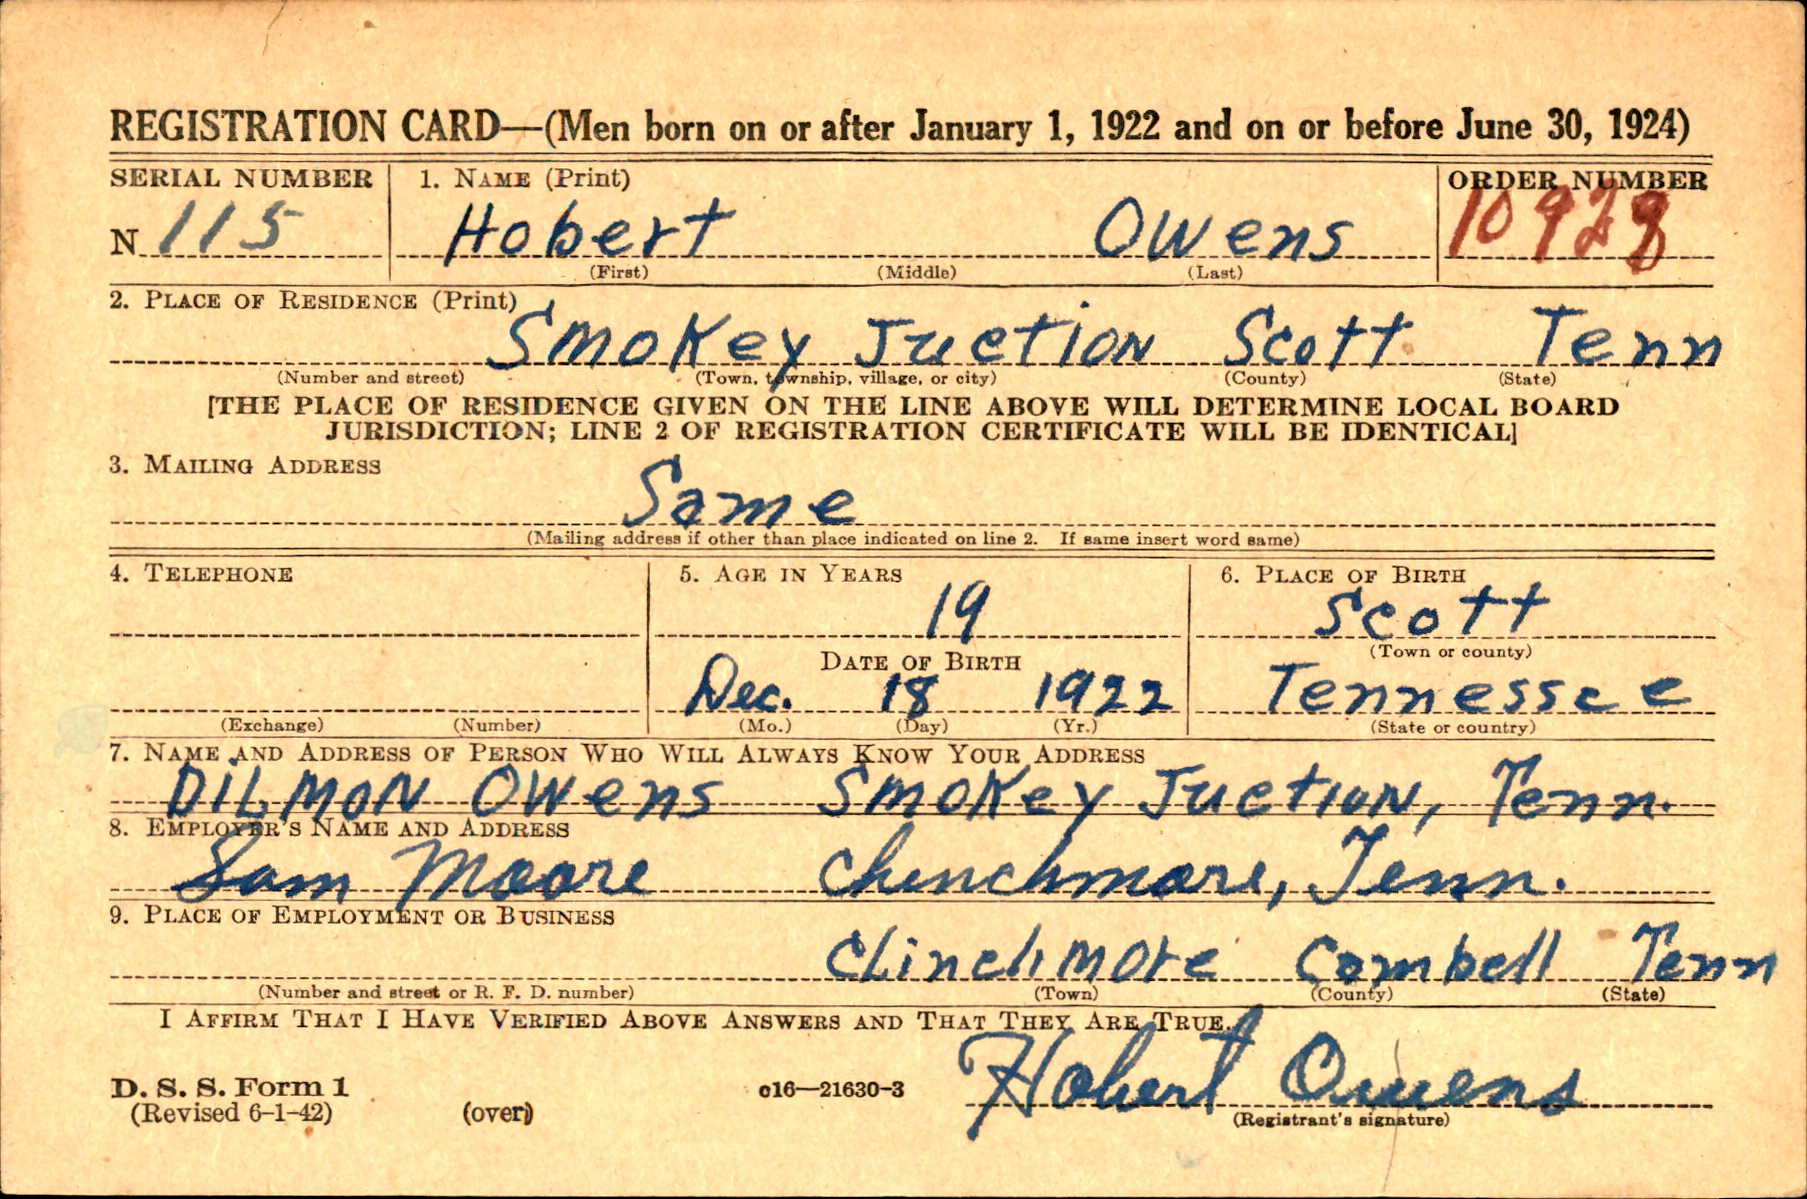 REGISTRATION CARD—(Men born on or after January 1, 1922 and on or before June 30, 1924)
SERIAL NUMBER 1. NAME (Print) ORDER NUMBER
N 115 Hobert Owens 10928
(First) (Middle) (Last)
2. PLACE OF RESIDENCE (Print)
Smokey Juction Scott Tenn
(Number and street) (Town, township, village, or city) (County) (State)
[THE PLACE OF RESIDENCE GIVEN ON THE LINE ABOVE WILL DETERMINE LOCAL BOARD
JURISDICTION; LINE 2 OF REGISTRATION CERTIFICATE WILL BE IDENTICAL]
3. MAILING ADDRESS
Same
(Mailing address if other than place indicated on line 2. If same insert word same)
4. TELEPHONE 5. AGE IN YEARS 6. PLACE OF BIRTH
19 Scott
(Town or county)
DATE OF BIRTH
Dec. 18 1922 Tennessee
(Exchange) (Number) (Mo.) (Day) (Yr.) (State or country)
7. NAME AND ADDRESS OF PERSON WHO WILL ALWAYS KNOW YOUR ADDRESS
DILMON Owens Smokey Juction, Tenn.
8. EMPLOYER'S NAME AND ADDRESS
Sam Moore Clinchmore, Tenn.
9. PLACE OF EMPLOYMENT OR BUSINESS
Clinchmore Combell Tenn
(Number and street or R. F. D. number) (Town) (County) (State)
I AFFIRM THAT I HAVE VERIFIED ABOVE ANSWERS AND THAT THEY ARE TRUE.
Hobert Owens
D. S. S. Form 1 c16—21630-3
(Revised 6-1-42) (over) (Registrant's signature)